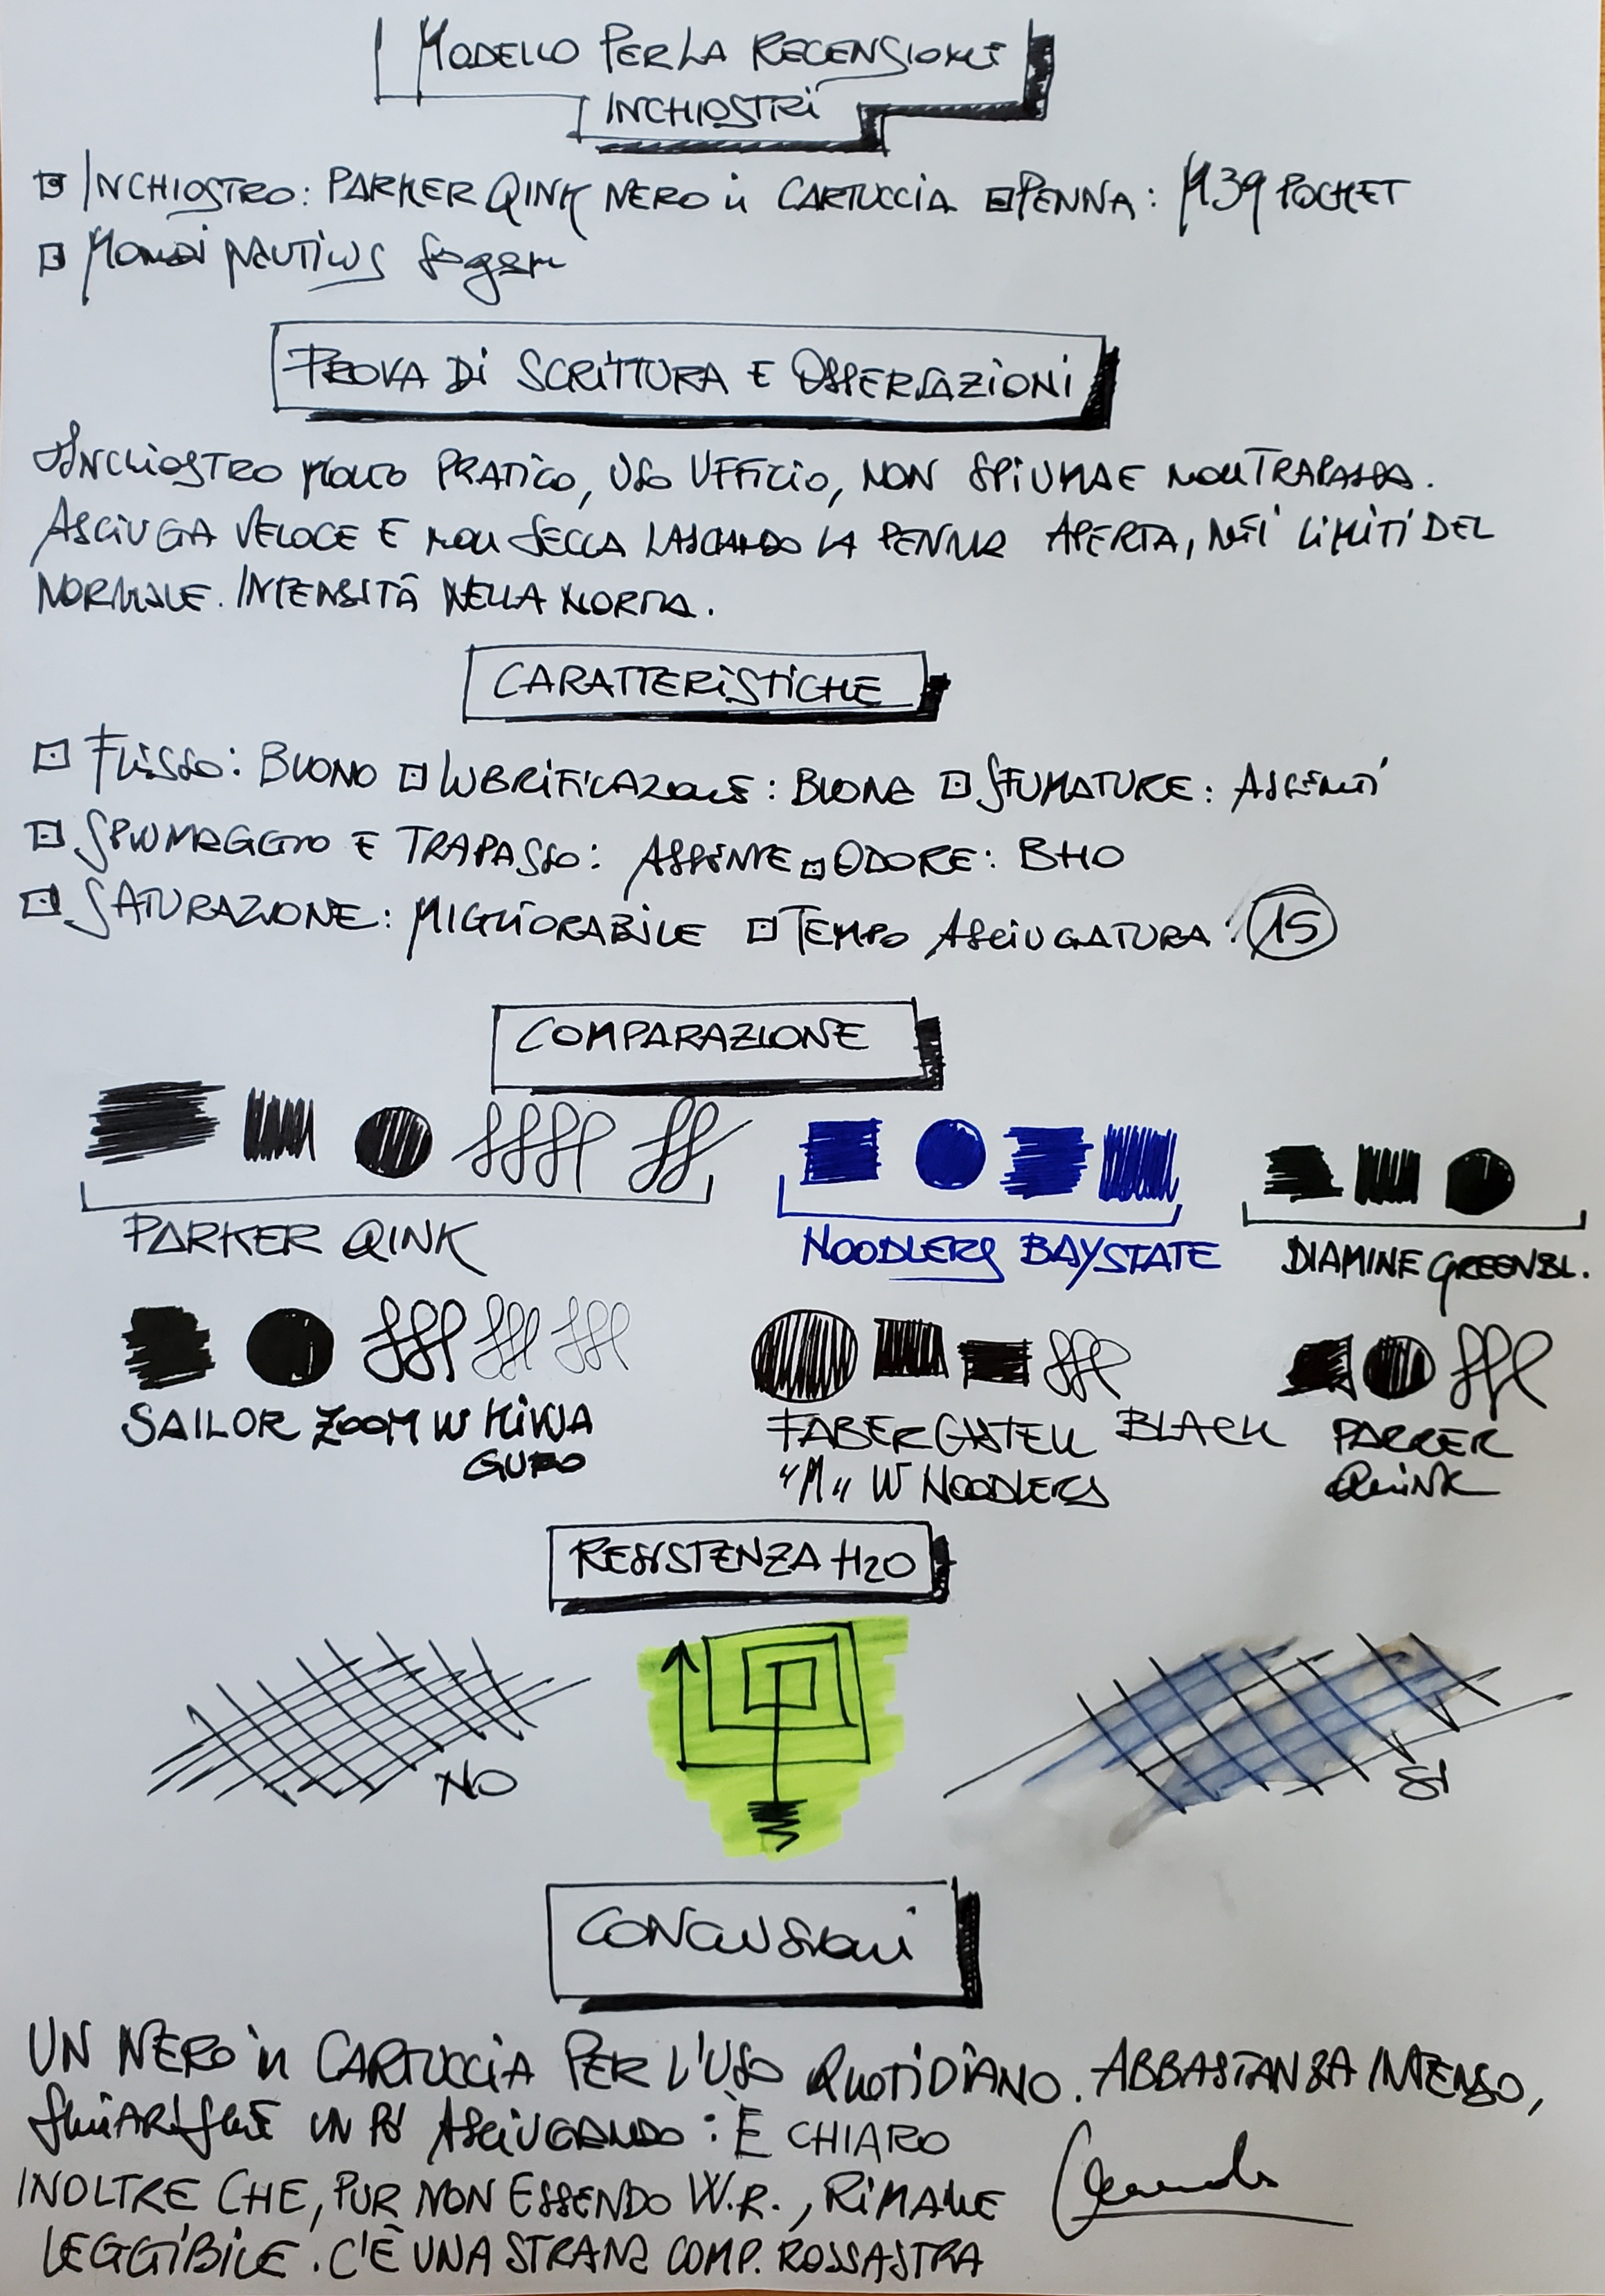 MODELLO PER LA RECENSIONE
INCHIOSTRI
INCHIOSTRO: PARKER QINK NERO in CARTUCCIA PENNA: M39 POCKET
NAUTILUS
PROVA DI SCRITTURA E OSSERVAZIONI
INCHIOSTRO MOLTO PRATICO, USO UFFICIO, NON SPIUMA E NON TRAPASSA.
ASCIUGA VELOCE E NON SECCA LASCIANDO LA PENNA APERTA, NEI LIMITI DEL
NORMALE. INTENSITÀ NELLA NORMA.
CARATTERISTICHE
FLUSSO: BUONO LUBRIFICAZIONE: BUONA SFUMATURE: ASSENTI
SPIUMAGGIO E TRAPASSO: ASSENTE ODORE: BHO
SATURAZIONE: MIGLIORABILE TEMPO ASCIUGATURA: 15
COMPARAZIONE
PARKER QINK NOODLERS BAYSTATE DIAMINE GREENBL.
SAILOR ZOOM W KIWA FABER CASTELL BLACK PARKER
GURO "M" W NOODLERS QUINK
RESISTENZA H2O
NO SI
CONCLUSIONI
UN NERO in CARTUCCIA PER L'USO QUOTIDIANO. ABBASTANZA INTENSO,
UN PO' ASCIUGANDO: È CHIARO
INOLTRE CHE, PUR NON ESSENDO W.R., RIMANE
LEGGIBILE. C'È UNA STRANA COMP. ROSSASTRA